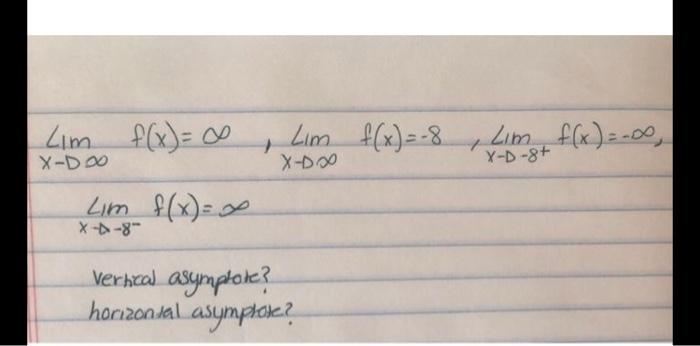 Lim f(x) = ∞ , Lim f(x) = -8 , Lim f(x) = -∞,
x→∞ x→∞ x→-8+
Lim f(x) = ∞
x→-8-
vertical asymptote?
horizontal asymptote?